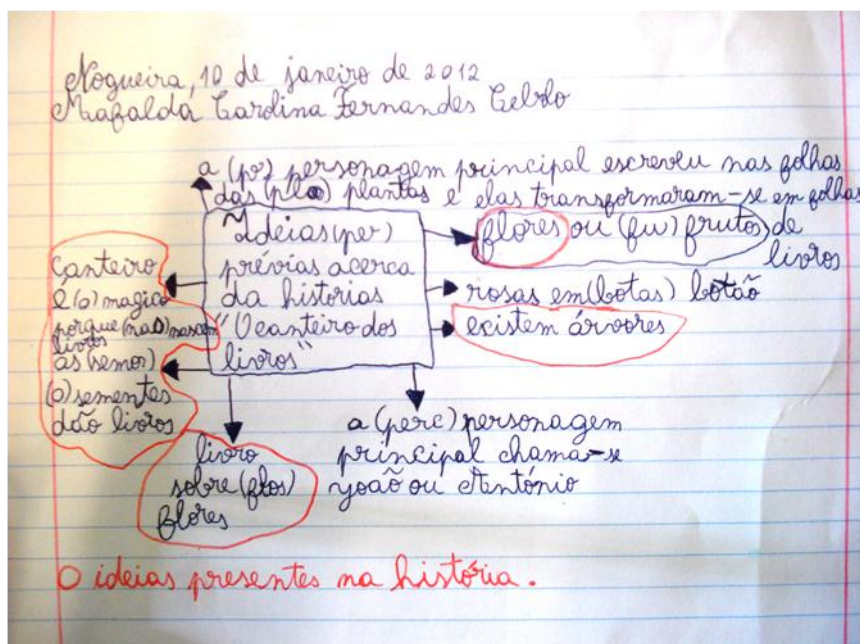 Nogueira, 10 de janeiro de 2012
Mafalda Carolina Fernandes
a (por) personagem principal escreveu nas folhas
das (pla) plantas e elas transformaram-se em folhas
flores ou (fru) frutos de
livros
"Ideias (per)
prévias acerca
da historias
"O canteiro dos
livros"
rosas em (botas) botão
existem árvores
canteiro
é (o) magico
porque (não) nascem
livros
as (semen)
(o) sementes
dão livros
livro
sobre (flos)
flores
a (perc) personagem
principal chama-se
João ou António
O ideias presentes na história.